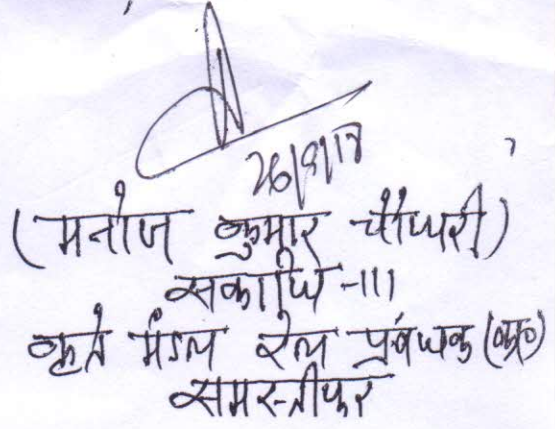 26/9/18
(मनोज कुमार चौधरी)
सकाधि-III
कृते मंडल रेल प्रबंधक (का०)
समस्तीपुर